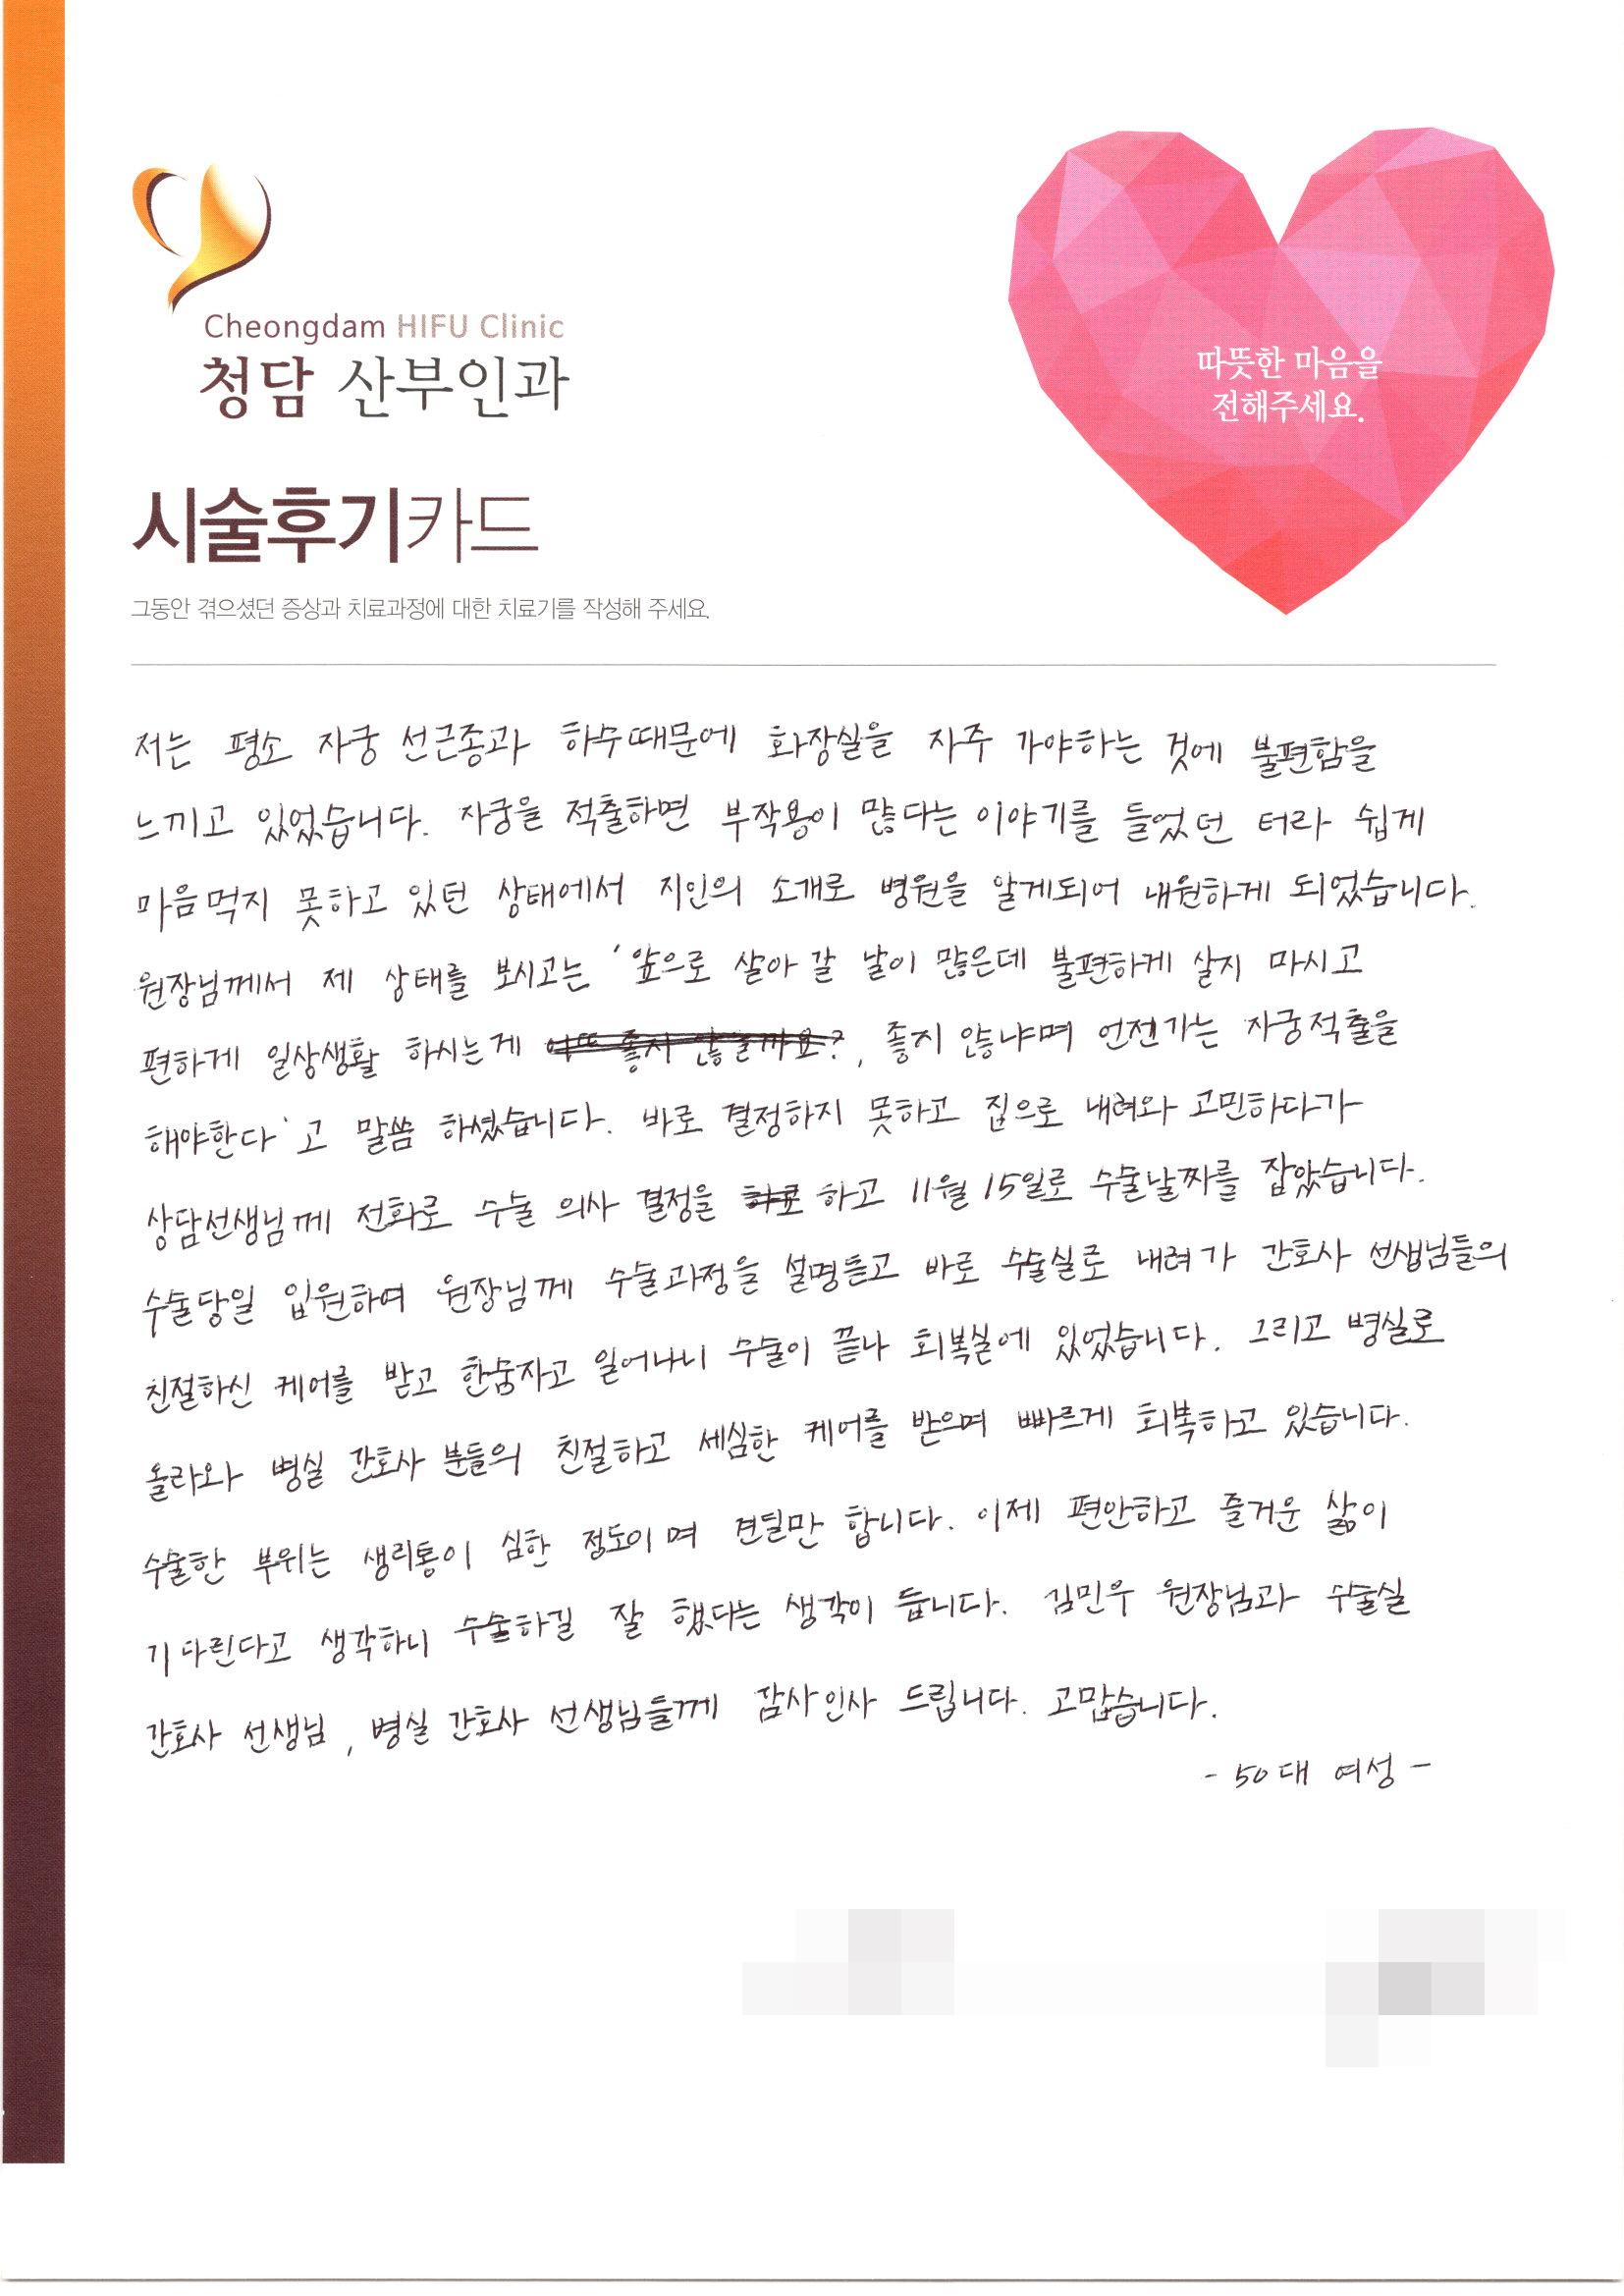 Cheongdam HIFU Clinic
청담 산부인과
따뜻한 마음을
전해주세요.
시술후기카드
그동안 겪으셨던 증상과 치료과정에 대한 치료기를 작성해 주세요.
저는 평소 자궁 선근종과 하수때문에 화장실을 자주 가야하는 것에 불편함을
느끼고 있었습니다. 자궁을 적출하면 부작용이 많다는 이야기를 들었던 터라 쉽게
마음먹지 못하고 있던 상태에서 지인의 소개로 병원을 알게되어 내원하게 되었습니다.
원장님께서 제 상태를 보시고는 '앞으로 살아 갈 날이 많은데 불편하게 살지 마시고
편하게 일상생활 하시는게 좋지 않을까요?, 좋지 않냐며 언젠가는 자궁적출을
해야한다'고 말씀 하셨습니다. 바로 결정하지 못하고 집으로 내려와 고민하다가
상담선생님께 전화로 수술 의사 결정을 하고 11월 15일로 수술날짜를 잡았습니다.
수술당일 입원하여 원장님께 수술과정을 설명듣고 바로 수술실로 내려가 간호사 선생님들의
친절하신 케어를 받고 한숨자고 일어나니 수술이 끝나 회복실에 있었습니다. 그리고 병실로
올라와 병실 간호사 분들의 친절하고 세심한 케어를 받으며 빠르게 회복하고 있습니다.
수술한 부위는 생리통이 심한 정도이며 견딜만 합니다. 이제 편안하고 즐거운 삶이
기다린다고 생각하니 수술하길 잘 했다는 생각이 듭니다. 김민우 원장님과 수술실
간호사 선생님, 병실 간호사 선생님들께 감사인사 드립니다. 고맙습니다.
- 50대 여성 -